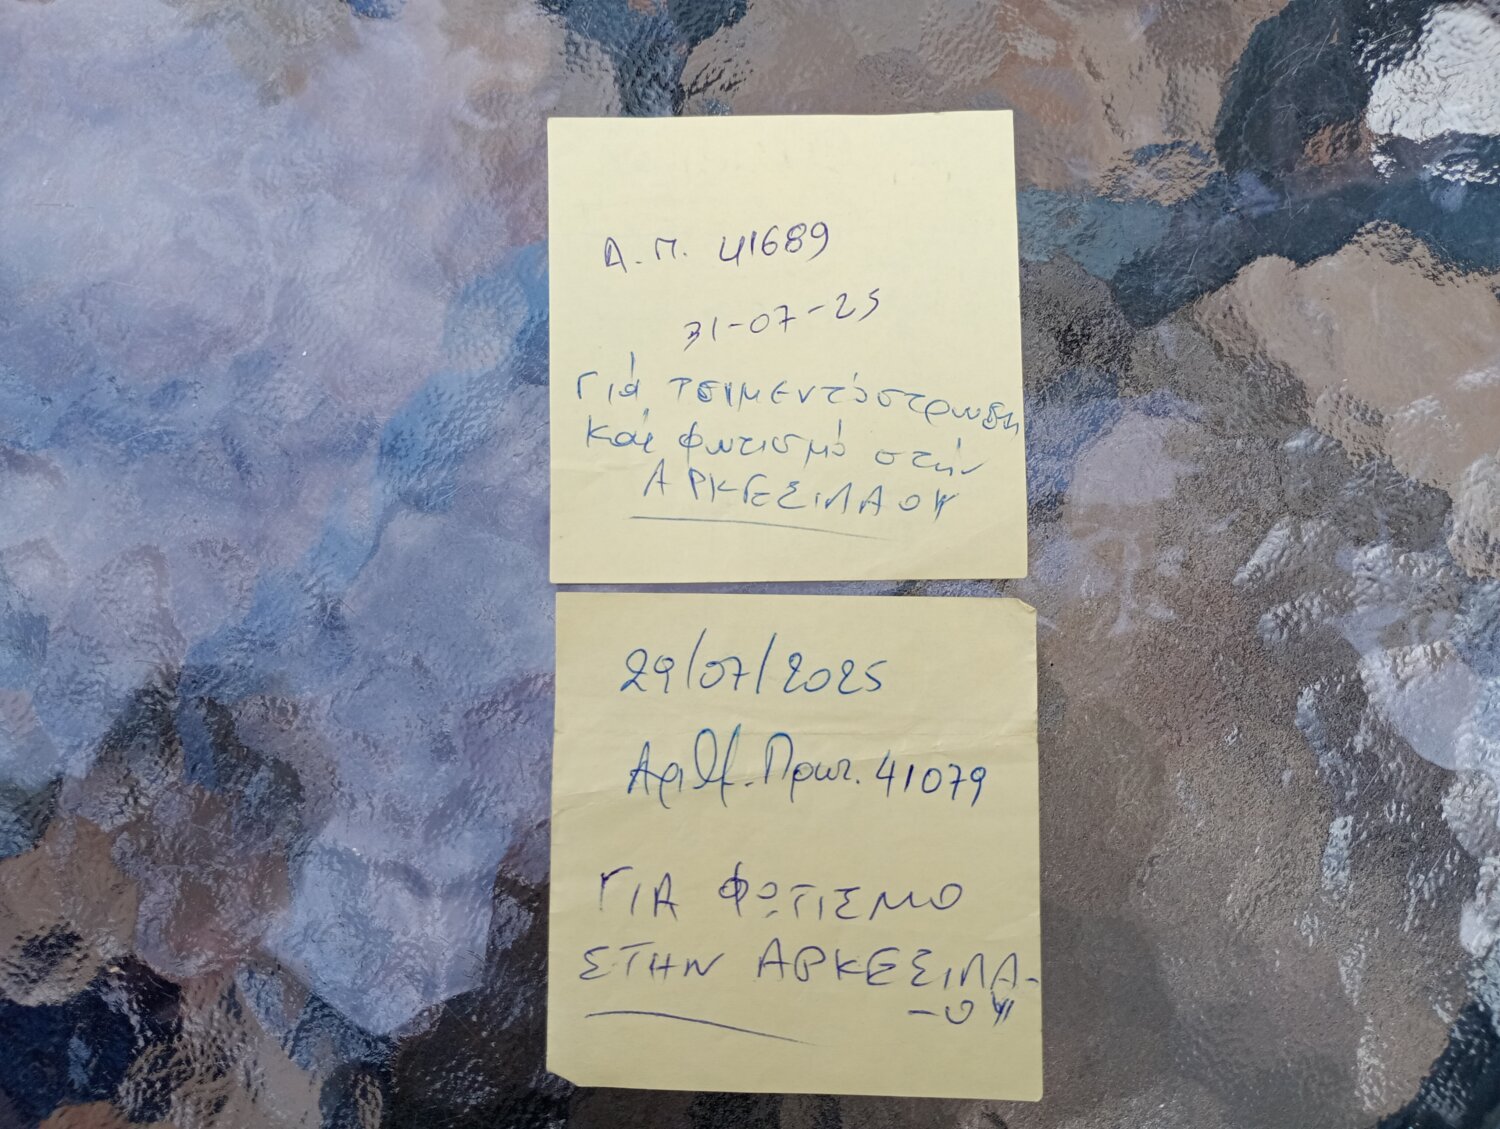 Α.Π. 41689
31-07-25
Γιά τσιμεντόστρωση
και φωτισμό στήν
ΑΡΚΕΣΙΛΑΟΥ
29/07/2025
Αριθ. Πρωτ. 41079
ΓΙΑ ΦΩΤΙΣΜΟ
ΣΤΗΝ ΑΡΚΕΣΙΛΑ-
-ΟΥ